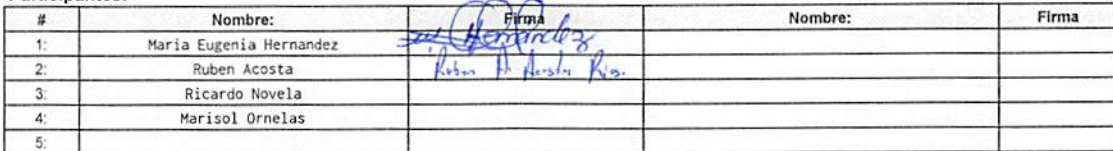 # Nombre: Firma Nombre: Firma
1: Maria Eugenia Hernandez Hernández
2: Ruben Acosta Ruben A. Acosta Rios.
3: Ricardo Novela
4: Marisol Ornelas
5: